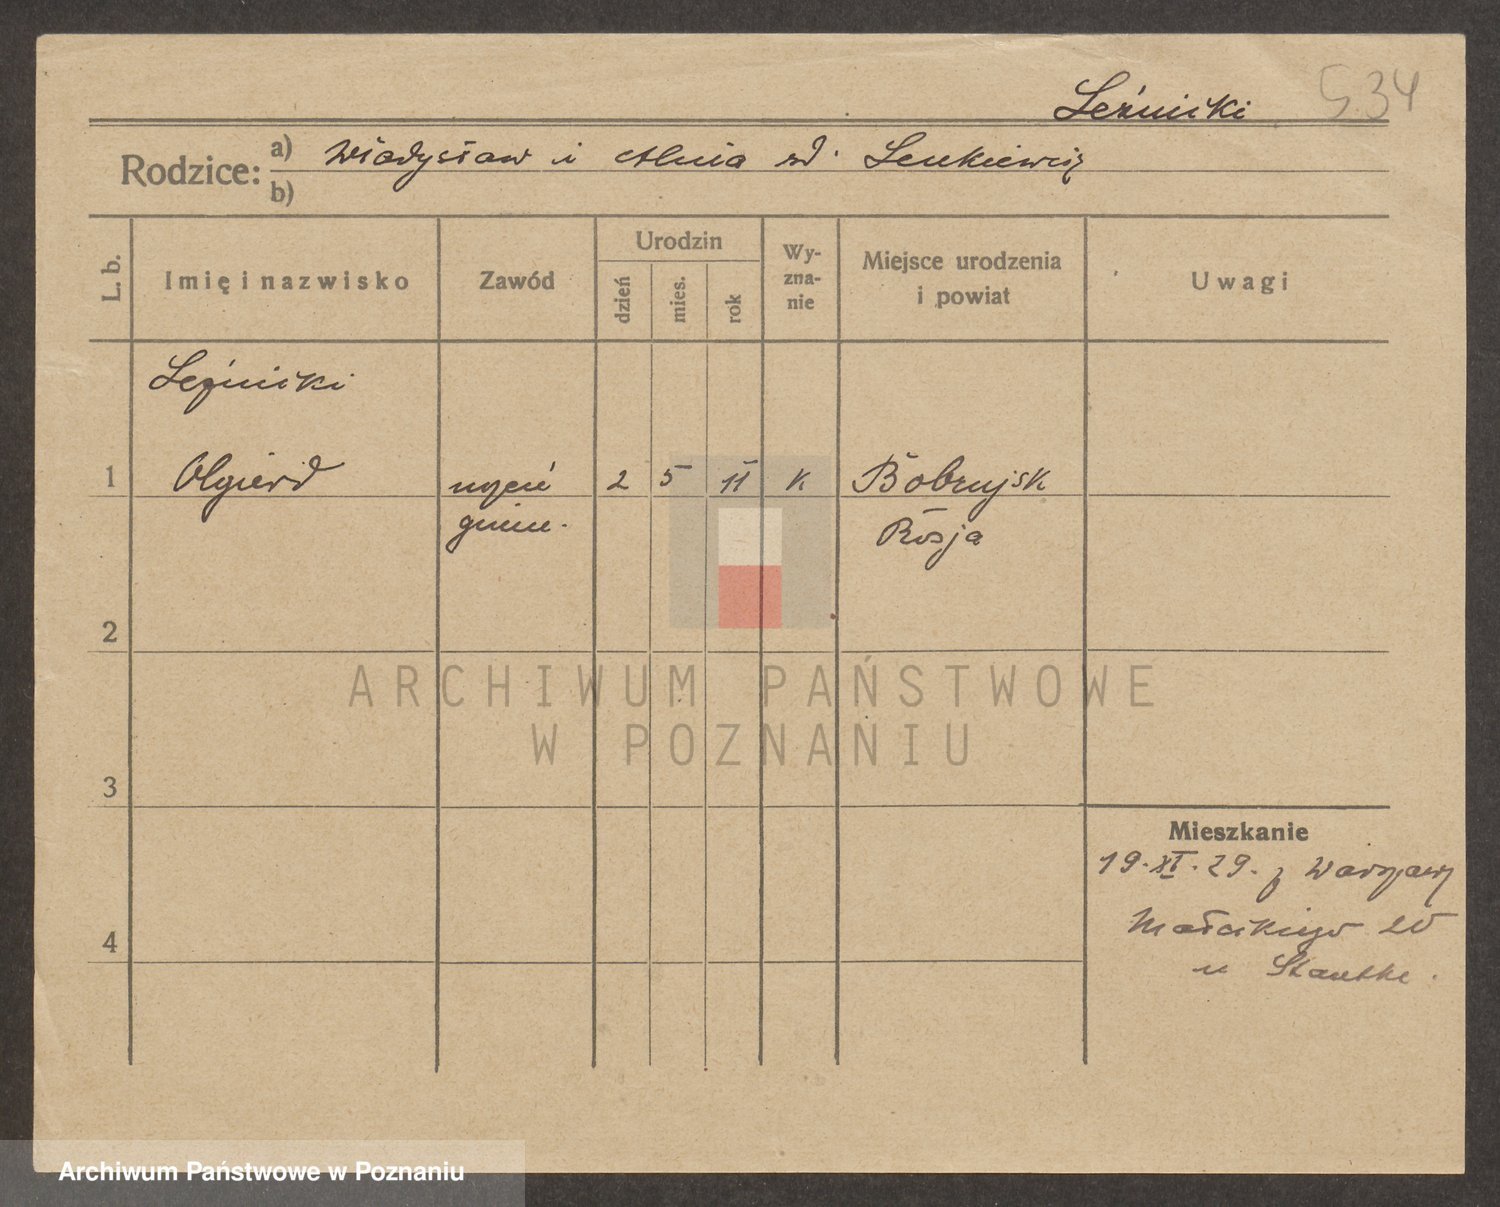 Leźnicki 534
Rodzice: a) Władysław i Alnia zd. Lenkiewicz
b)
L. b.
Imię i nazwisko
Zawód
Urodzin
dzień
mies.
rok
Wy-
zna-
nie
Miejsce urodzenia
i powiat
Uwagi
Leźnicki
1 Olgierd uczeń 2 5 11 K Bobrujsk
gimn. Rosja
2
3
4
Mieszkanie
19.XI.29. z Warszawy
Małeckiego 20
u Stautke.
ARCHIWUM PAŃSTWOWE
W POZNANIU
Archiwum Państwowe w Poznaniu